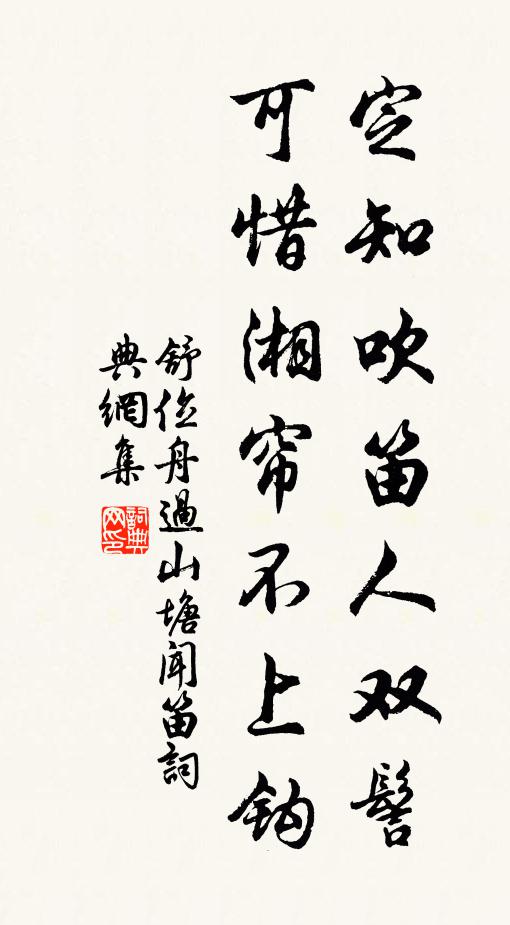 定知吹笛人双髻
可惜湘帘不上钩
舒位舟過山塘聞笛詞
典網集
詞典网印